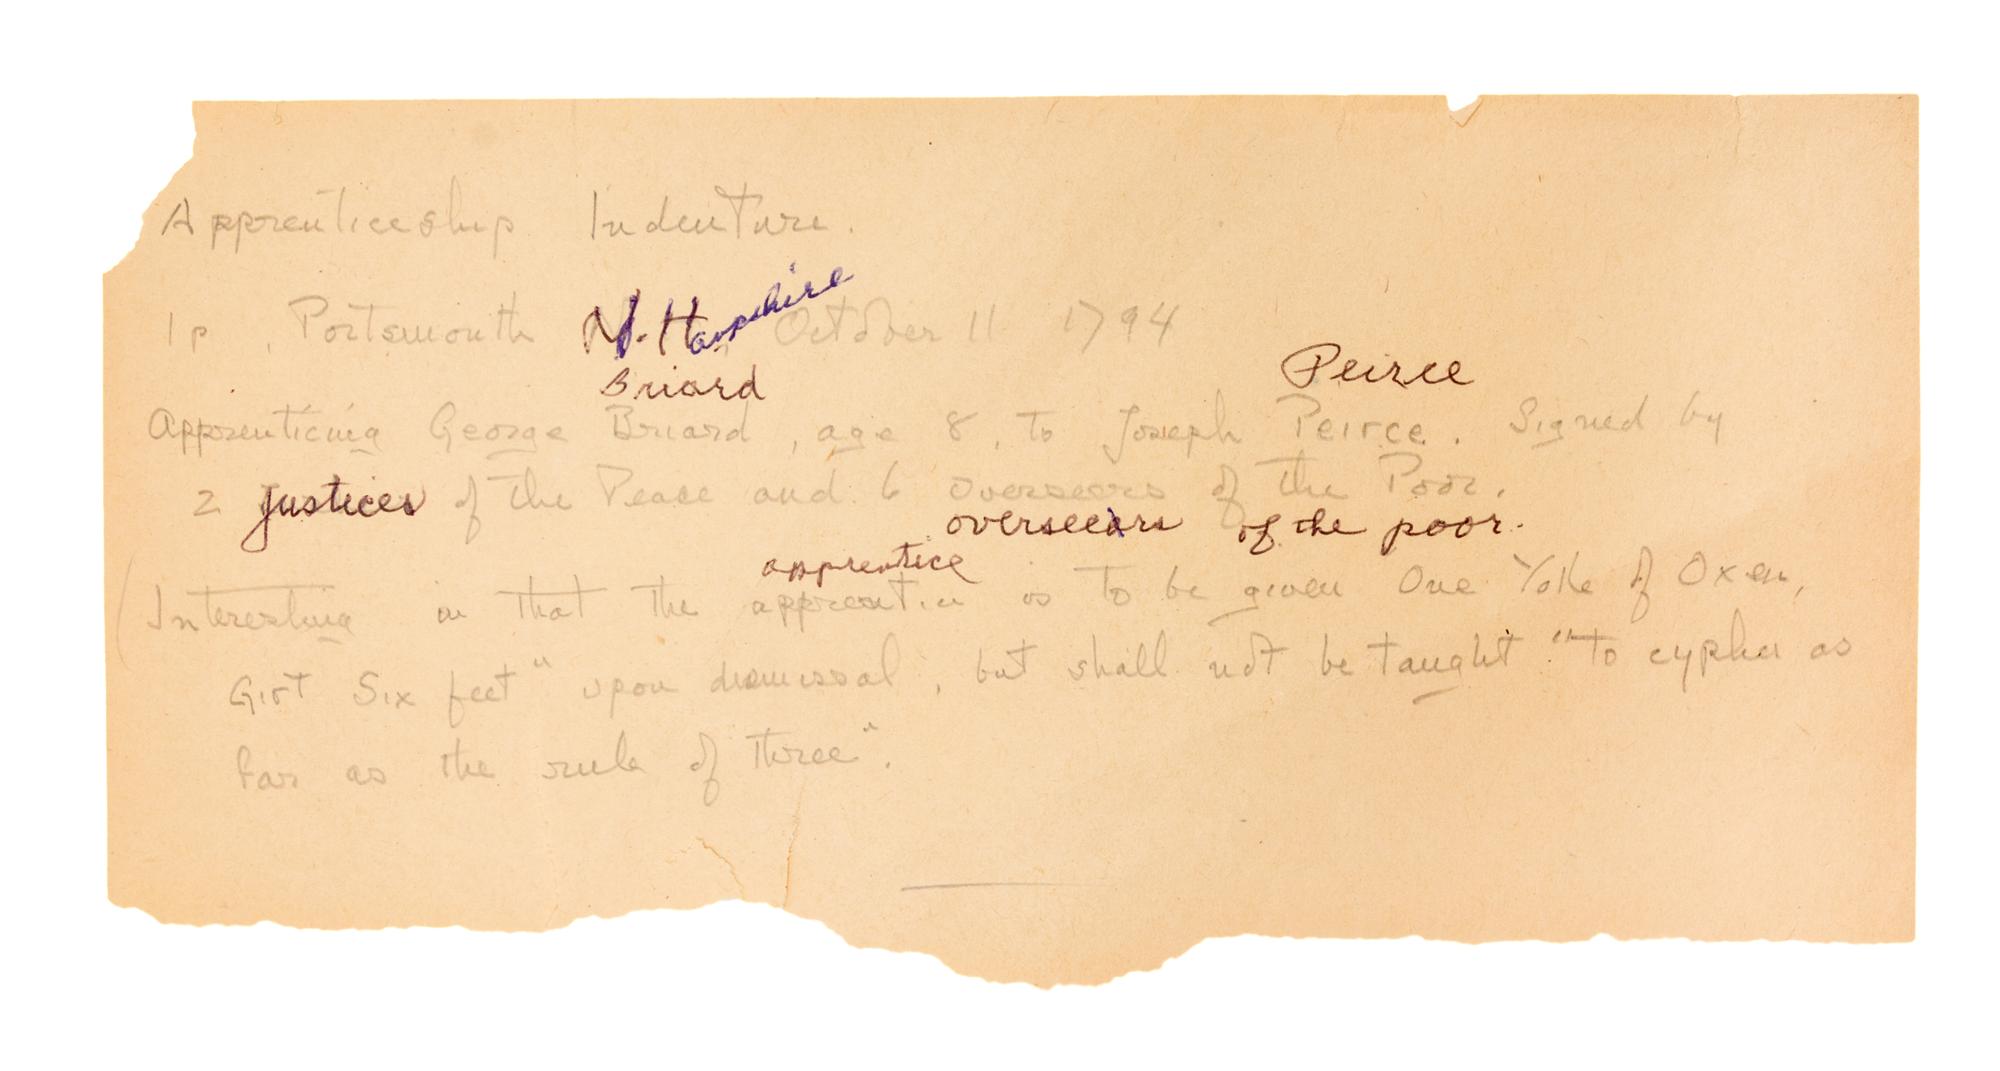 Apprenticeship Indenture.
1p, Portsmouth N. Hampshire, October 11 1794
Briard Peirce
Apprenticing George Briard, age 8, to Joseph Peirce. Signed by
2 Justices of the Peace and 6 overseers of the Poor.
overseears of the poor.
apprentice
(Interesting in that the apprentice is to be given One Yoke of Oxen,
Girt Six feet" upon dismissal, but shall not be taught "to cypher as
far as the rule of three".